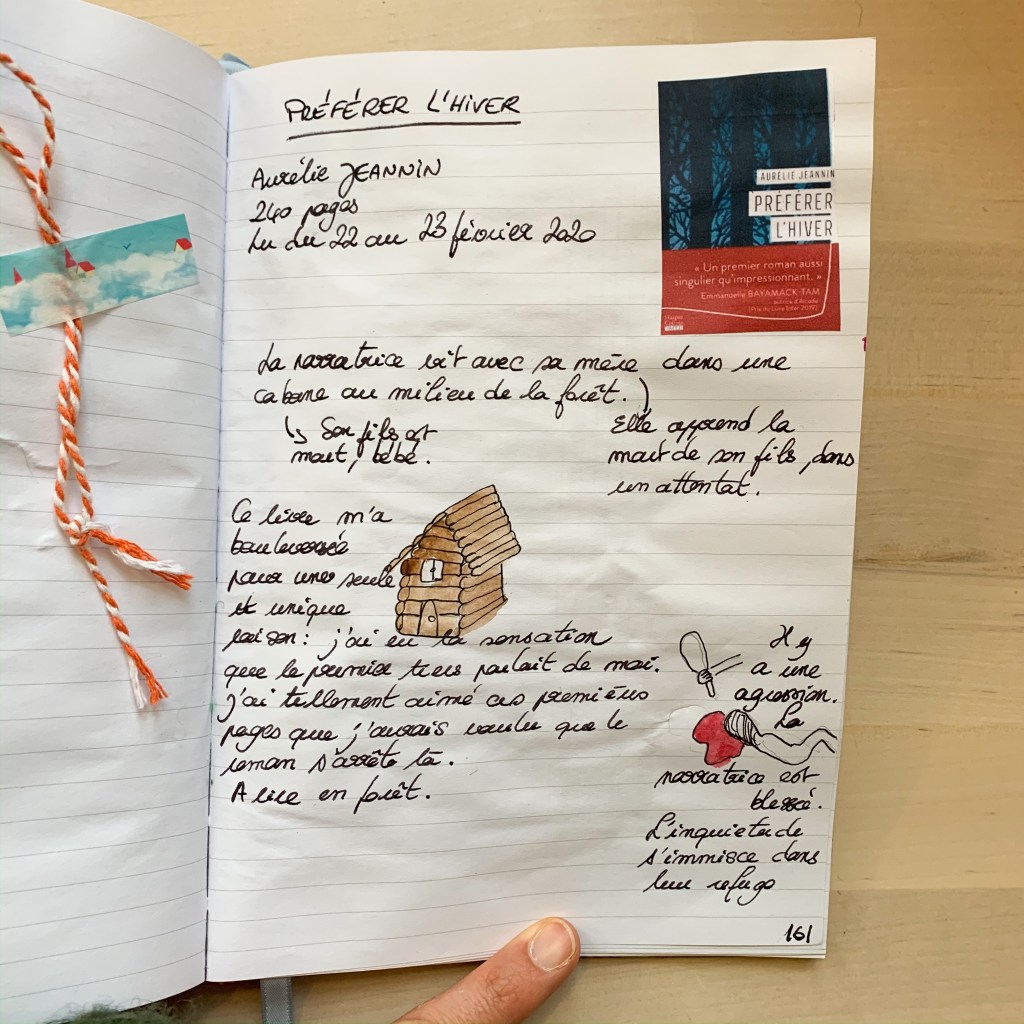 PRÉFÉRER L'HIVER
Aurélie JEANNIN
240 pages
Lu du 22 au 23 février 2020
AURÉLIE JEANNIN
PRÉFÉRER
L'HIVER
« Un premier roman aussi
singulier qu'impressionnant. »
Emmanuelle BAYAMACK-TAM
La narratrice vit avec sa mère dans une
cabane au milieu de la forêt.
↳ Son fils est
mort, bébé.
Elle apprend la
mort de son fils, dans
un attentat.
Ce livre m'a
bouleversée
pour une seule
et unique
raison : j'ai eu la sensation
que le premier tiers parlait de moi.
J'ai tellement aimé ces premières
pages que j'aurais voulu que le
roman s'arrête là.
A lire en forêt.
Il y
a une
agression.
La
narratrice est
blessé.
L'inquietude
s'immisce dans
leur refuge
161